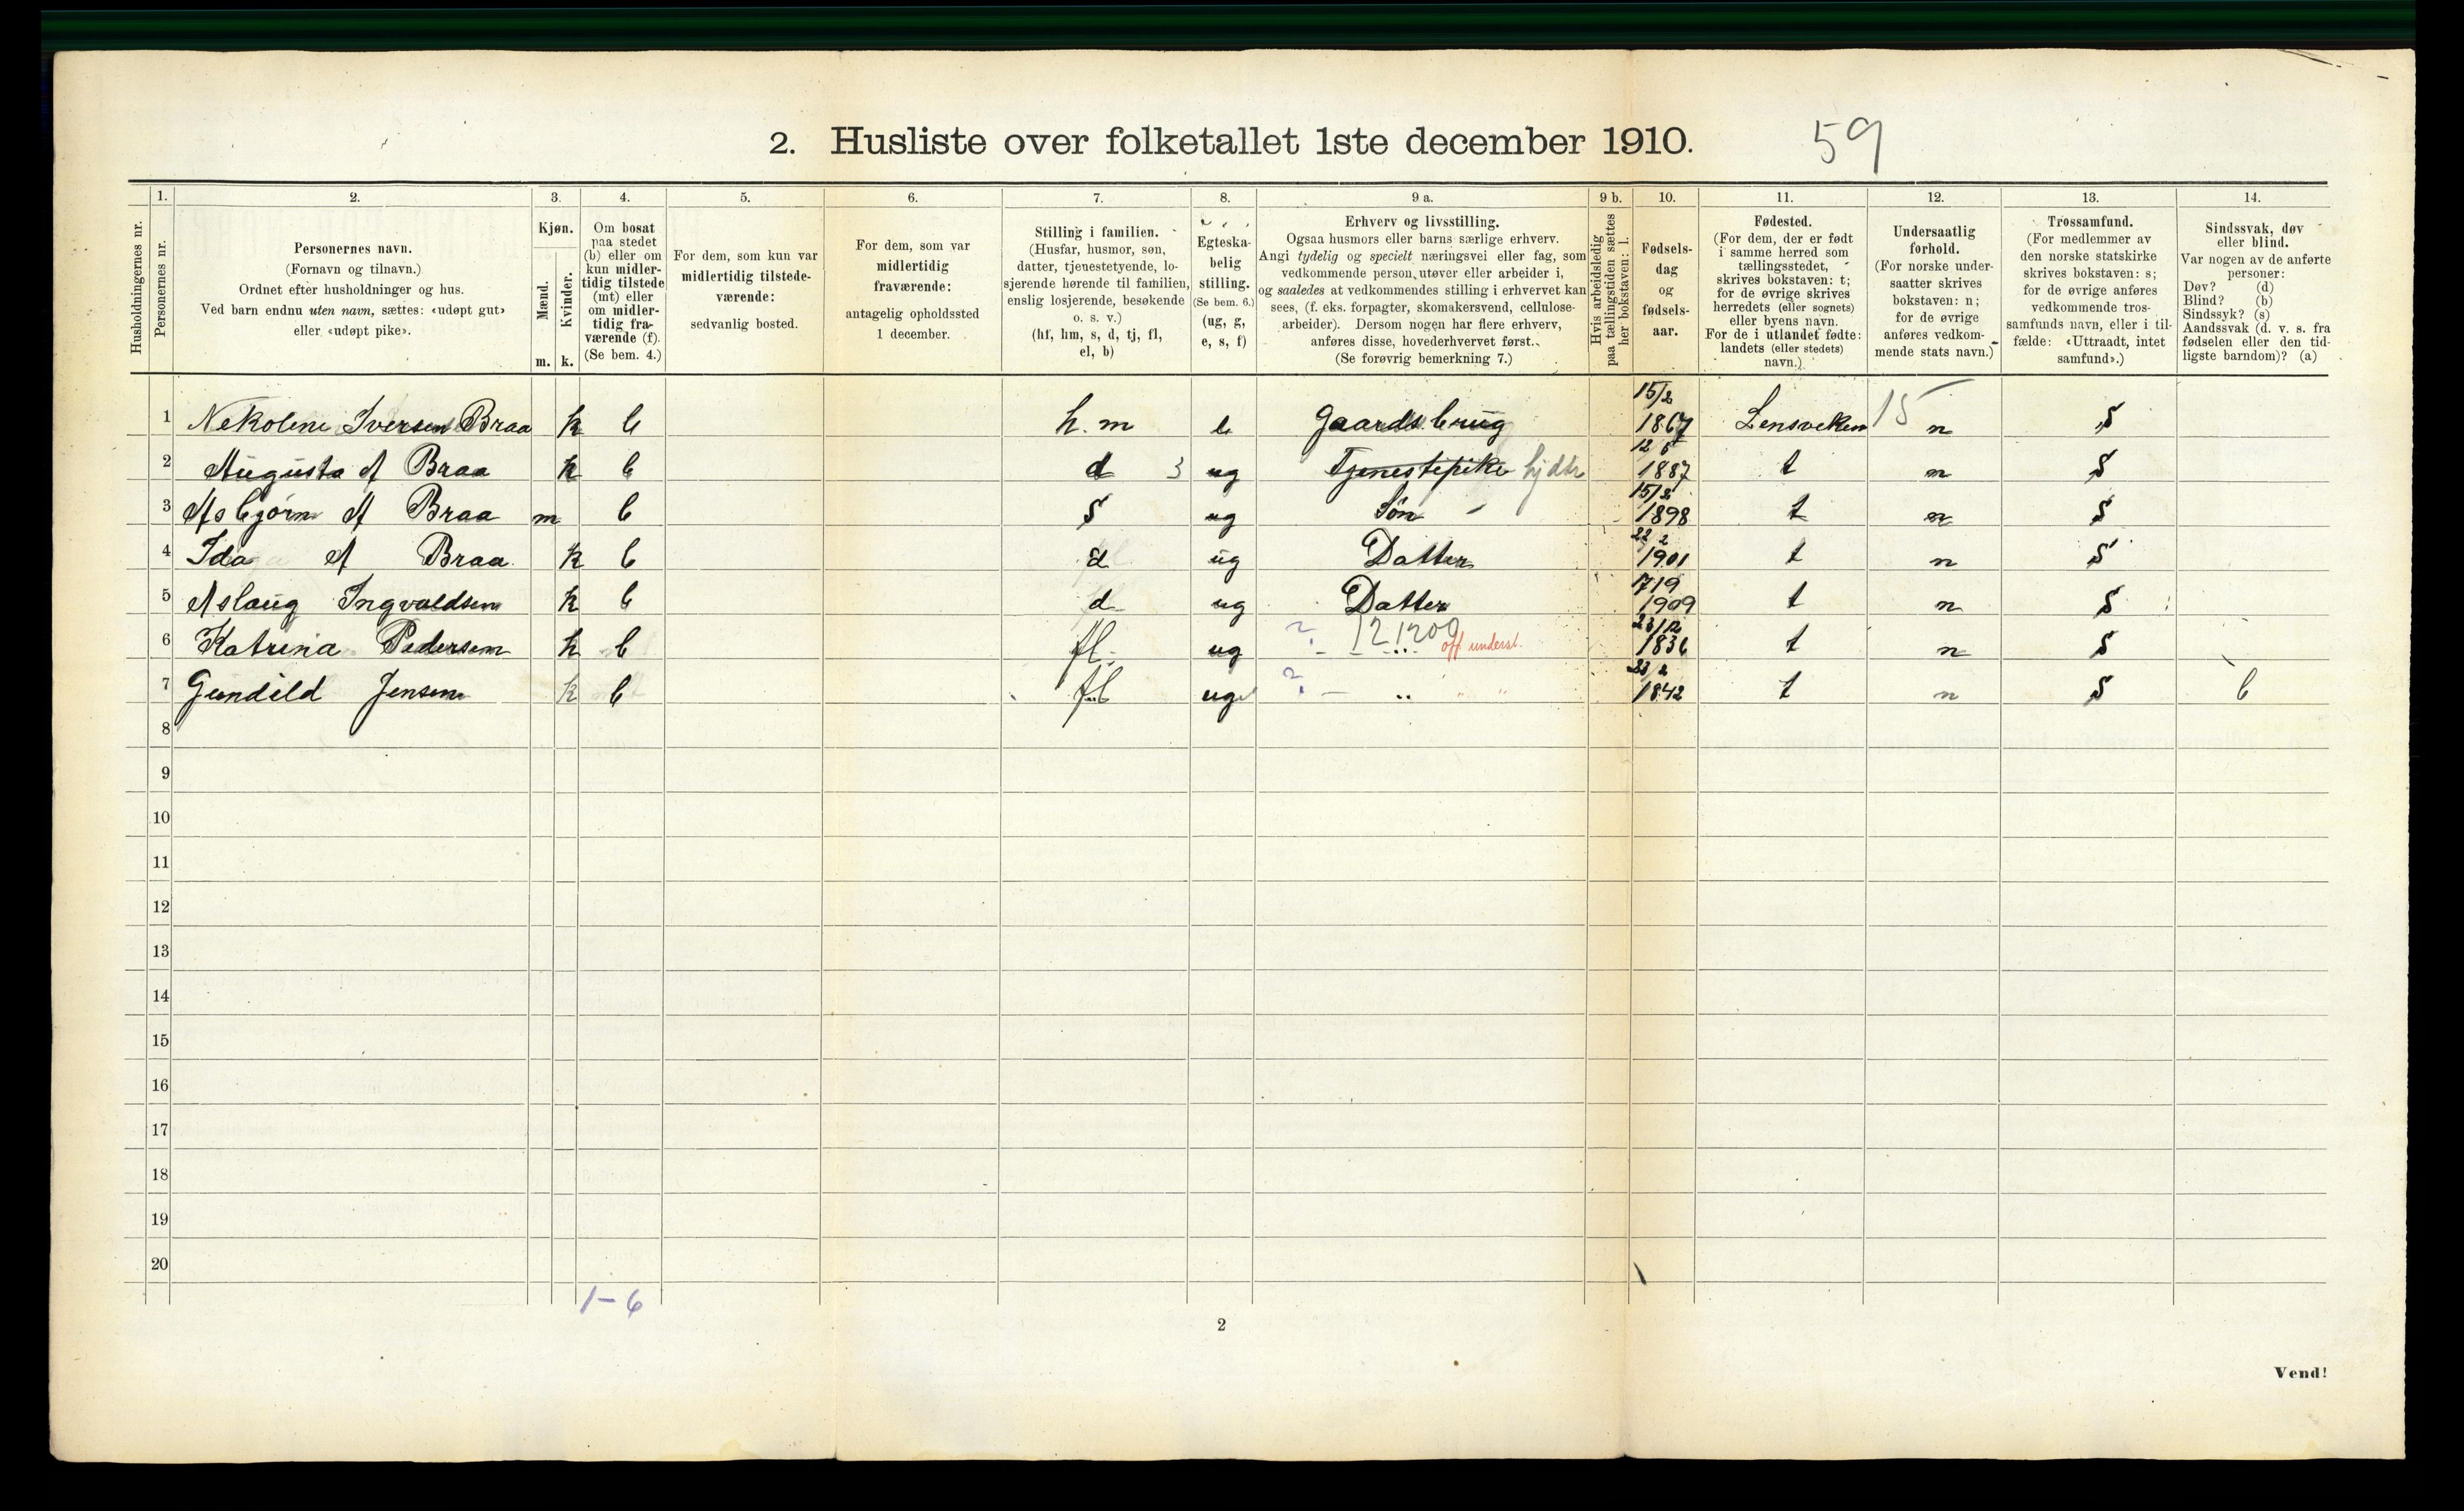 2. Husliste over folketallet 1ste december 1910. 59
Husholdningernes nr.
1. Personernes nr.
2. Personernes navn.
(Fornavn og tilnavn.)
Ordnet efter husholdninger og hus.
Ved barn endnu uten navn, sættes: «udøpt gut»
eller «udøpt pike».
3. Kjøn.
Mænd. Kvinder.
m. k.
4. Om bosat
paa stedet
(b) eller om
kun midler-
tidig tilstede
(mt) eller
om midler-
tidig fra-
værende (f).
(Se bem. 4.)
5. For dem, som kun var
midlertidig tilstede-
værende:
sedvanlig bosted.
6. For dem, som var
midlertidig
fraværende:
antagelig opholdssted
1 december.
7. Stilling i familien.
(Husfar, husmor, søn,
datter, tjenestetyende, lo-
sjerende hørende til familien,
enslig losjerende, besøkende
o. s. v.)
(hf, hm, s, d, tj, fl,
el, b)
8. Egteska-
belig
stilling.
(Se bem. 6.)
(ug, g,
e, s, f)
9 a. Erhverv og livsstilling.
Ogsaa husmors eller barns særlige erhverv.
Angi tydelig og specielt næringsvei eller fag, som
vedkommende person utøver eller arbeider i,
og saaledes at vedkommendes stilling i erhvervet kan
sees, (f. eks. forpagter, skomakersvend, cellulose-
arbeider). Dersom nogen har flere erhverv,
anføres disse, hovederhvervet først.
(Se forøvrig bemerkning 7.)
9 b. Hvis arbeidsledig
paa tællingstiden sættes
her bokstaven: l.
10. Fødsels-
dag
og
fødsels-
aar.
11. Fødested.
(For dem, der er født
i samme herred som
tællingsstedet,
skrives bokstaven: t;
for de øvrige skrives
herredets (eller sognets)
eller byens navn.
For de i utlandet fødte:
landets (eller stedets)
navn.)
12. Undersaatlig
forhold.
(For norske under-
saatter skrives
bokstaven: n;
for de øvrige
anføres vedkom-
mende stats navn.)
13. Trossamfund.
(For medlemmer av
den norske statskirke
skrives bokstaven: s;
for de øvrige anføres
vedkommende tros-
samfunds navn, eller i til-
fælde: «Uttraadt, intet
samfund».)
14. Sindssvak, døv
eller blind.
Var nogen av de anførte
personer:
Døv? (d)
Blind? (b)
Sindssyk? (s)
Aandssvak (d. v. s. fra
fødselen eller den tid-
ligste barndom)? (a)
1 Nekoline Iversen Braa k b h.m e Gaardsbrug 15/2 1867 Lensveken 15 n S
2 Augusta A Braa k b d 3 ug Tjenestepike hjdtr 1887 t n S
3 Asbjørn A Braa m b S ug Søn 15/2 1898 t n S
4 Ida A Braa k b d ug Datter 22 2 1901 t n S
5 Aslaug Ingvaldsen k b d ug Datter 17/9 1909 t n S
6 Katrina Pedersen k b fl. ug ? 121200 off underst. 23/12 1836 t n S
7 Gundild Jensen k b fl ug ? " " 23/2 1842 t n S b
8
9
10
11
12
13
14
15
16
17
18
19
20
1-6
2
Vend!